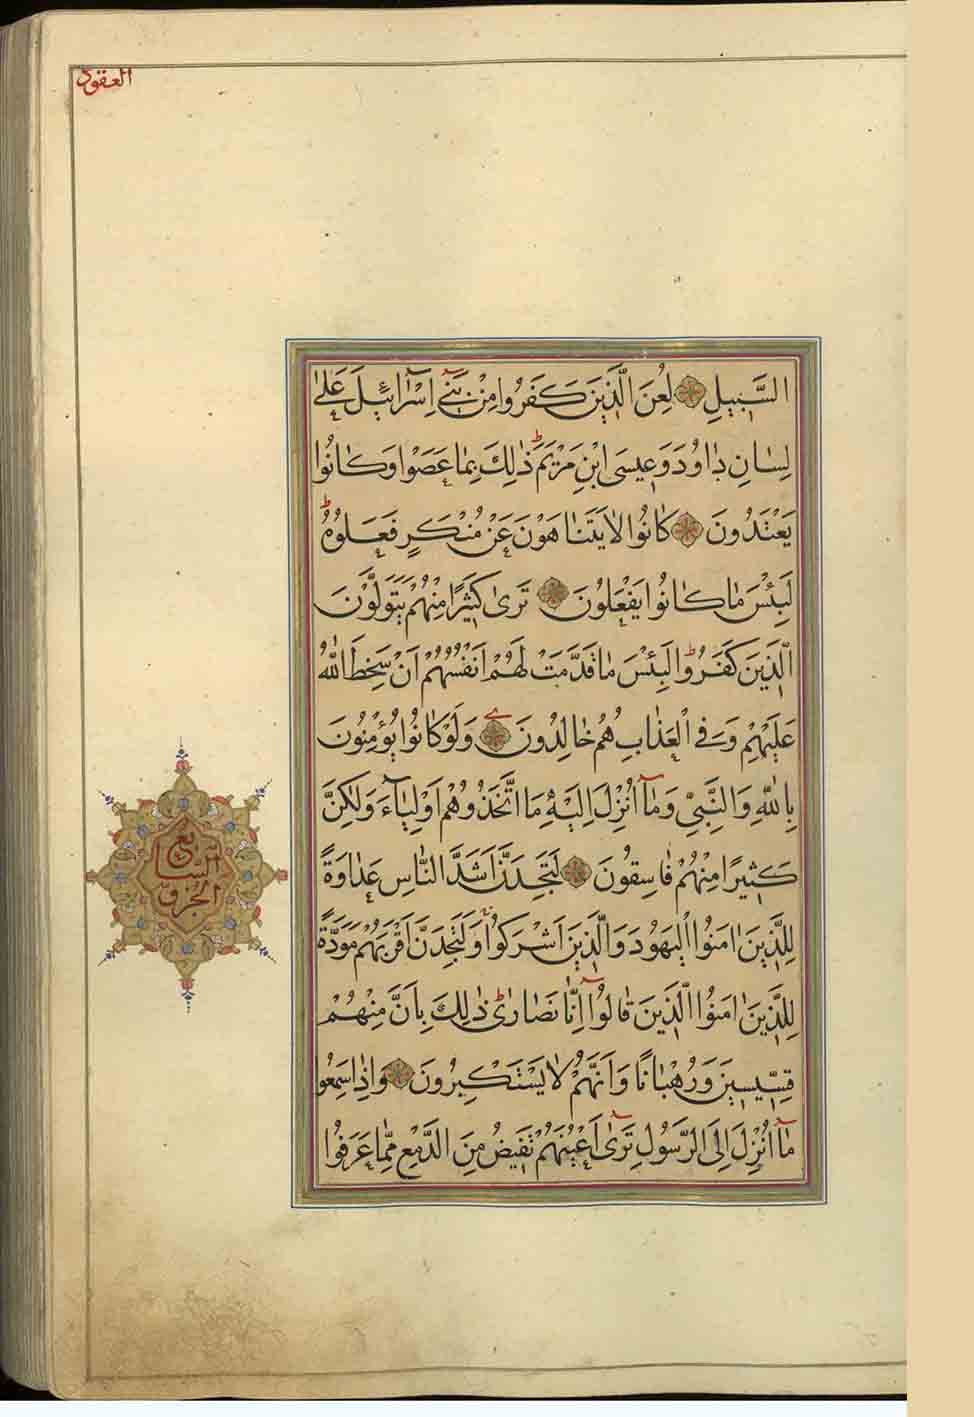 العقود
السَّبِيلِ لُعِنَ الَّذِينَ كَفَرُوا مِنْ بَنِي إِسْرَائِيلَ عَلَى
لِسَانِ دَاوُدَ وَعِيسَى ابْنِ مَرْيَمَ ذٰلِكَ بِمَا عَصَوْا وَكَانُوا
يَعْتَدُونَ كَانُوا لَا يَتَنَاهَوْنَ عَنْ مُنْكَرٍ فَعَلُوهُ
لَبِئْسَ مَا كَانُوا يَفْعَلُونَ تَرَى كَثِيرًا مِنْهُمْ يَتَوَلَّوْنَ
الَّذِينَ كَفَرُوا لَبِئْسَ مَا قَدَّمَتْ لَهُمْ أَنْفُسُهُمْ أَنْ سَخِطَ اللّٰهُ
عَلَيْهِمْ وَفِي الْعَذَابِ هُمْ خَالِدُونَ وَلَوْ كَانُوا يُؤْمِنُونَ
بِاللّٰهِ وَالنَّبِيِّ وَمَا أُنْزِلَ إِلَيْهِ مَا اتَّخَذُوهُمْ أَوْلِيَاءَ وَلٰكِنَّ
كَثِيرًا مِنْهُمْ فَاسِقُونَ لَتَجِدَنَّ أَشَدَّ النَّاسِ عَدَاوَةً
لِلَّذِينَ اٰمَنُوا الْيَهُودَ وَالَّذِينَ أَشْرَكُوا وَلَتَجِدَنَّ أَقْرَبَهُمْ مَوَدَّةً
لِلَّذِينَ اٰمَنُوا الَّذِينَ قَالُوا إِنَّا نَصَارَى ذٰلِكَ بِأَنَّ مِنْهُمْ
قِسِّيسِينَ وَرُهْبَانًا وَأَنَّهُمْ لَا يَسْتَكْبِرُونَ وَإِذَا سَمِعُوا
مَا أُنْزِلَ إِلَى الرَّسُولِ تَرَى أَعْيُنَهُمْ تَفِيضُ مِنَ الدَّمْعِ مِمَّا عَرَفُوا
الجزو
السابع